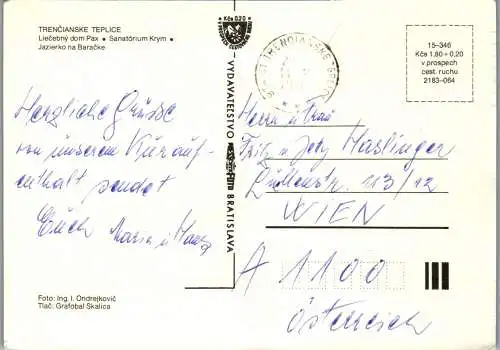 TRENČIANSKE TEPLICE
Liečebný dom Pax • Sanatórium Krym •
Jazierko na Baračke
Herzliche Grüsse
von unserem Kurauf-
enthalt sendet
Euch Maria u Hans
Foto: Ing. I. Ondrejkovič
Tlač: Grafobal Skalica
Kčs 0,20
VYDAVATEĽSTVO
BRATISLAVA
TRENČIANSKE TEPLICE
15-346
Kčs 1,80 + 0,20
v prospech
cest. ruchu
2183-064
Herrn u Frau
Fritz u Jety Haslinger
113/12
WIEN
A 1100
Österreich